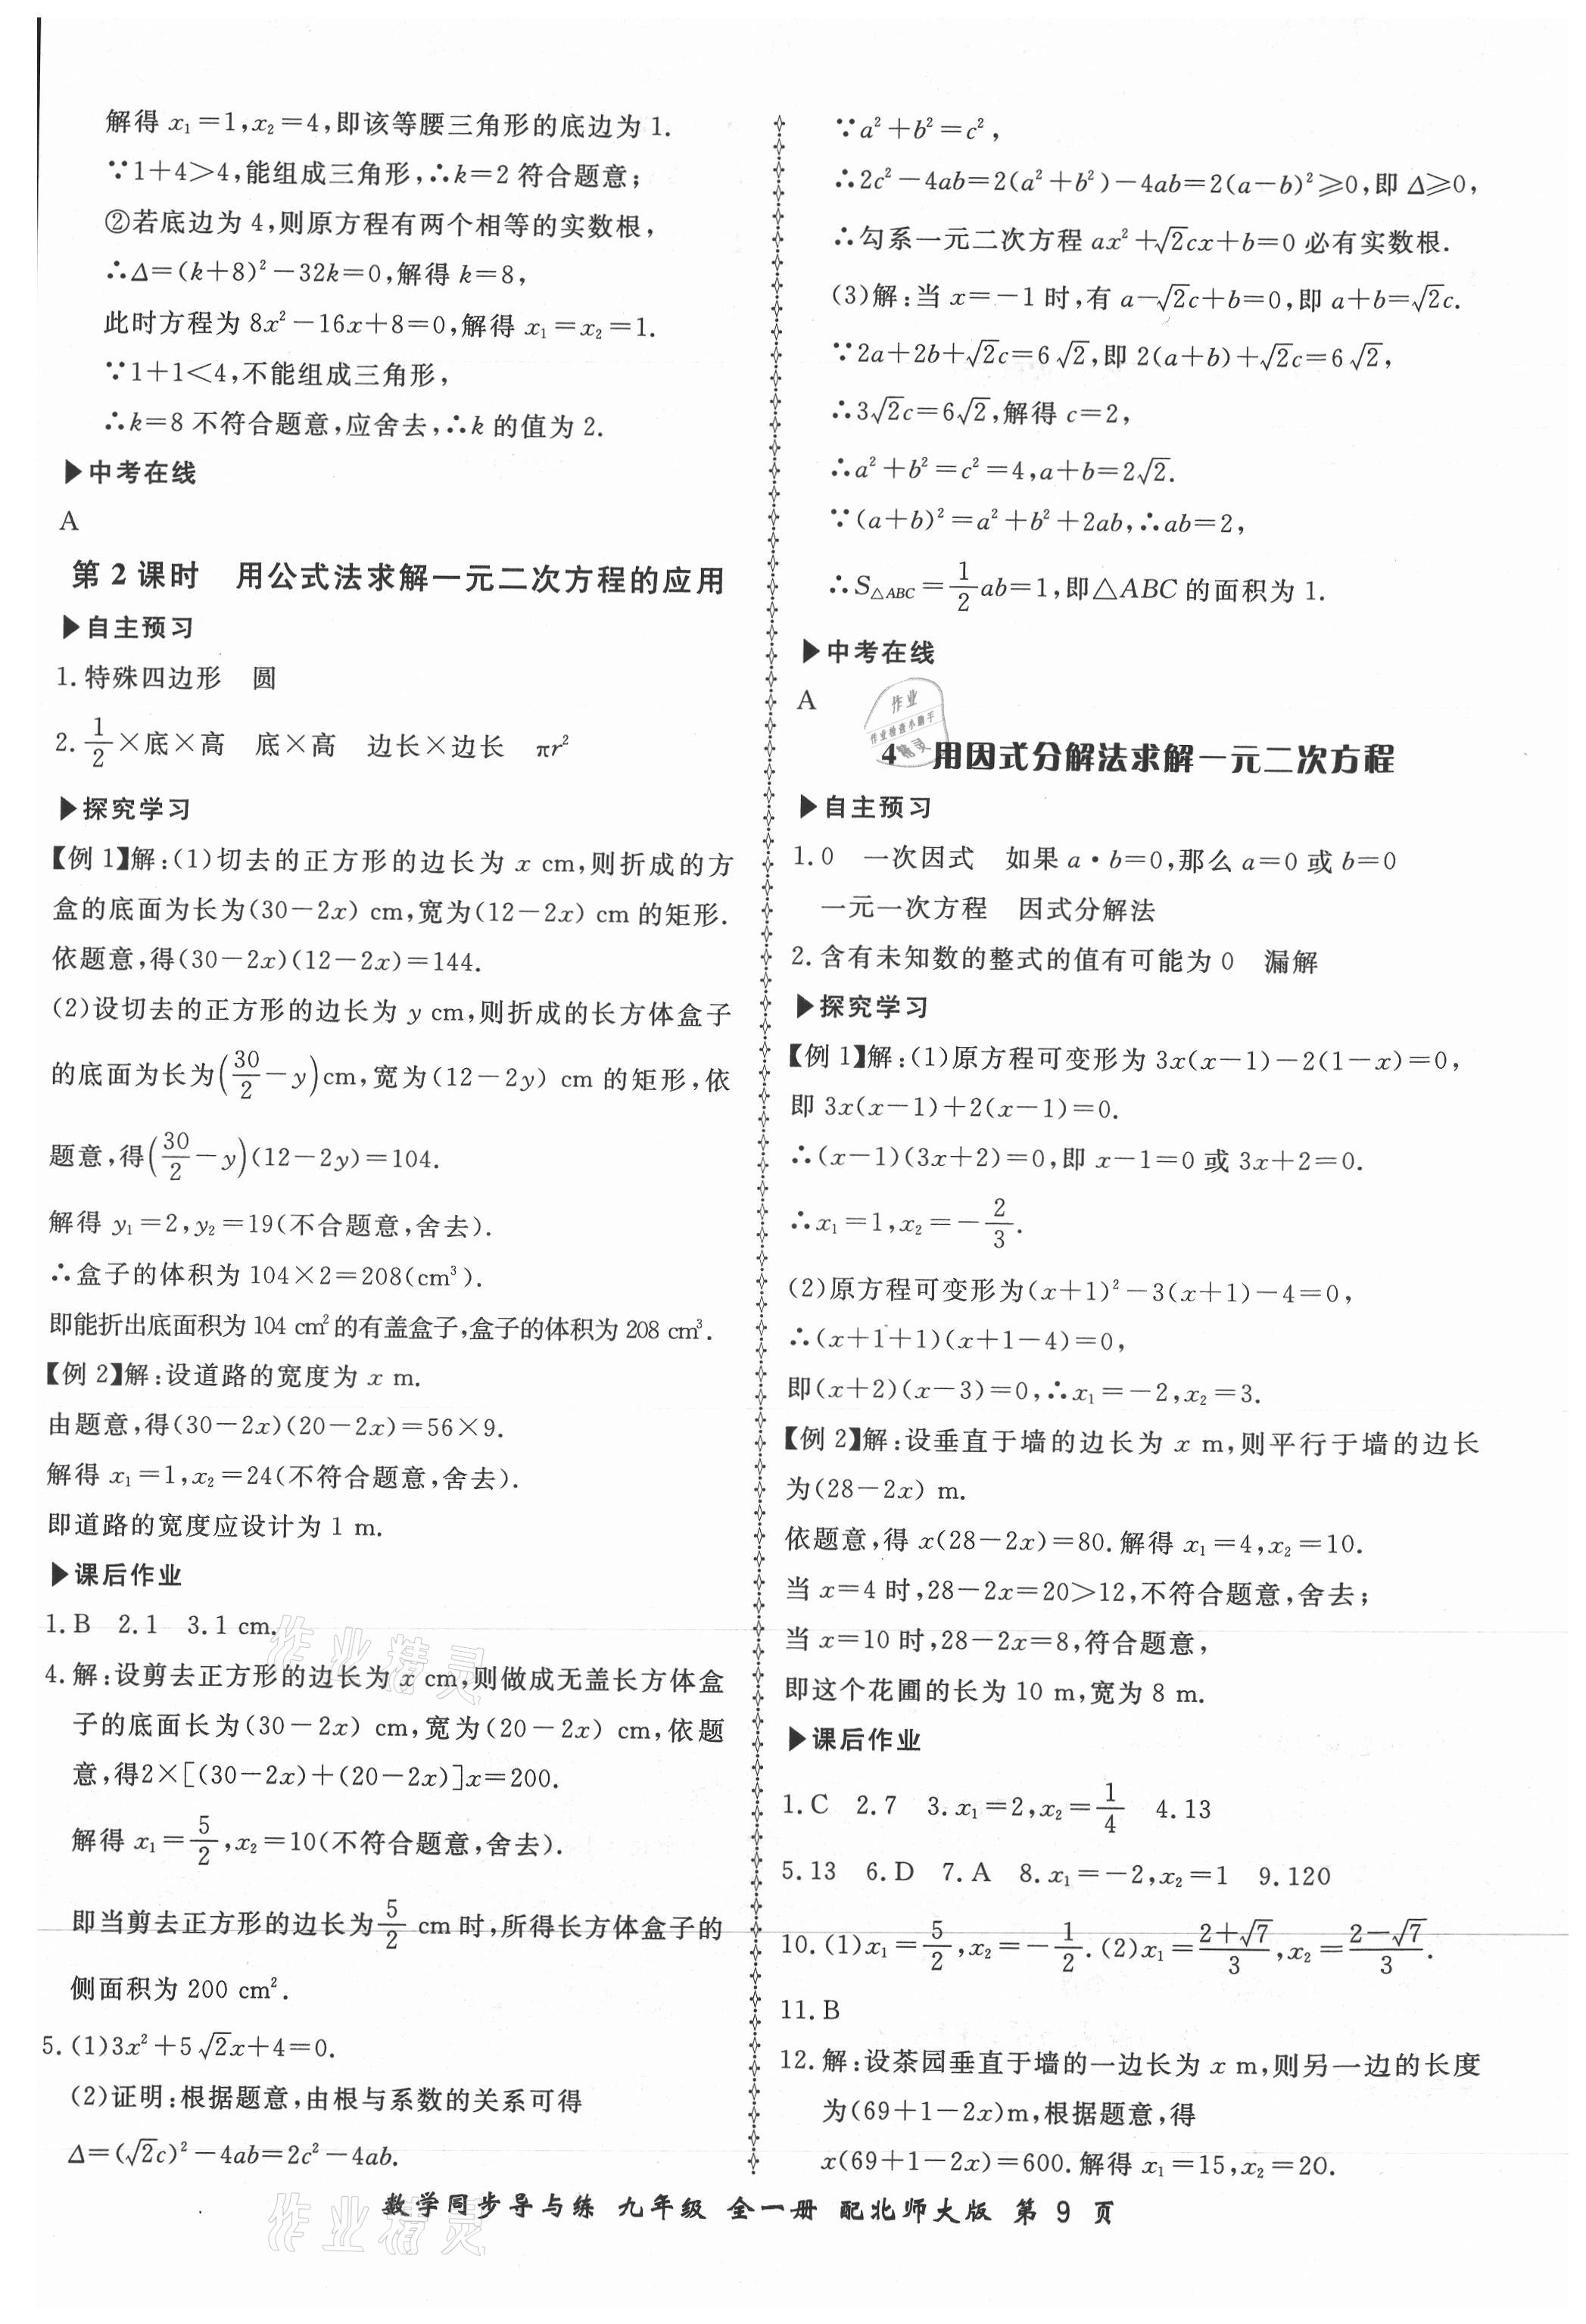 解得 x₁=1,x₂=4,即该等腰三角形的底边为 1.
∵1+4>4,能组成三角形,∴k=2 符合题意;
②若底边为 4,则原方程有两个相等的实数根,
∴Δ=(k+8)²-32k=0,解得 k=8,
此时方程为 8x²-16x+8=0,解得 x₁=x₂=1.
∵1+1<4,不能组成三角形,
∴k=8 不符合题意,应舍去,∴k 的值为 2.
▶中考在线
A
第 2 课时 用公式法求解一元二次方程的应用
▶自主预习
1.特殊四边形 圆
2.1/2×底×高 底×高 边长×边长 πr²
▶探究学习
【例 1】解:(1)切去的正方形的边长为 x cm,则折成的方
盒的底面为长为(30-2x) cm,宽为(12-2x) cm 的矩形.
依题意,得(30-2x)(12-2x)=144.
(2)设切去的正方形的边长为 y cm,则折成的长方体盒子
的底面为长为(30/2-y)cm,宽为(12-2y) cm 的矩形,依
题意,得(30/2-y)(12-2y)=104.
解得 y₁=2,y₂=19(不合题意,舍去).
∴盒子的体积为 104×2=208(cm³).
即能折出底面积为 104 cm²的有盖盒子,盒子的体积为 208 cm³.
【例 2】解:设道路的宽度为 x m.
由题意,得(30-2x)(20-2x)=56×9.
解得 x₁=1,x₂=24(不符合题意,舍去).
即道路的宽度应设计为 1 m.
▶课后作业
1.B 2.1 3.1 cm.
4.解:设剪去正方形的边长为 x cm,则做成无盖长方体盒
子的底面长为(30-2x) cm,宽为(20-2x) cm,依题
意,得2×[(30-2x)+(20-2x)]x=200.
解得 x₁=5/2,x₂=10(不符合题意,舍去).
即当剪去正方形的边长为5/2 cm 时,所得长方体盒子的
侧面积为 200 cm².
5.(1)3x²+5√2x+4=0.
(2)证明:根据题意,由根与系数的关系可得
Δ=(√2c)²-4ab=2c²-4ab.
∵a²+b²=c²,
∴2c²-4ab=2(a²+b²)-4ab=2(a-b)²≥0,即 Δ≥0,
∴勾系一元二次方程 ax²+√2cx+b=0 必有实数根.
(3)解:当 x=-1 时,有 a-√2c+b=0,即 a+b=√2c.
∵2a+2b+√2c=6√2,即 2(a+b)+√2c=6√2,
∴3√2c=6√2,解得 c=2,
∴a²+b²=c²=4,a+b=2√2.
∵(a+b)²=a²+b²+2ab,∴ab=2,
∴S△ABC=1/2ab=1,即△ABC 的面积为 1.
▶中考在线
A
作业
作业检查小助手
精灵
4 用因式分解法求解一元二次方程
▶自主预习
1.0 一次因式 如果 a·b=0,那么 a=0 或 b=0
一元一次方程 因式分解法
2.含有未知数的整式的值有可能为 0 漏解
▶探究学习
【例 1】解:(1)原方程可变形为 3x(x-1)-2(1-x)=0,
即 3x(x-1)+2(x-1)=0.
∴(x-1)(3x+2)=0,即 x-1=0 或 3x+2=0.
∴x₁=1,x₂=-2/3.
(2)原方程可变形为(x+1)²-3(x+1)-4=0,
∴(x+1+1)(x+1-4)=0,
即(x+2)(x-3)=0,∴x₁=-2,x₂=3.
【例 2】解:设垂直于墙的边长为 x m,则平行于墙的边长
为(28-2x) m.
依题意,得 x(28-2x)=80.解得 x₁=4,x₂=10.
当 x=4 时,28-2x=20>12,不符合题意,舍去;
当 x=10 时,28-2x=8,符合题意,
即这个花圃的长为 10 m,宽为 8 m.
▶课后作业
1.C 2.7 3.x₁=2,x₂=1/4 4.13
5.13 6.D 7.A 8.x₁=-2,x₂=1 9.120
10.(1)x₁=5/2,x₂=-1/2.(2)x₁=(2+√7)/3,x₂=(2-√7)/3.
11.B
12.解:设茶园垂直于墙的一边长为 x m,则另一边的长度
为(69+1-2x)m,根据题意,得
x(69+1-2x)=600.解得 x₁=15,x₂=20.
作业精灵
数学同步导与练 九年级 全一册 配北师大版 第 9 页
作业精灵